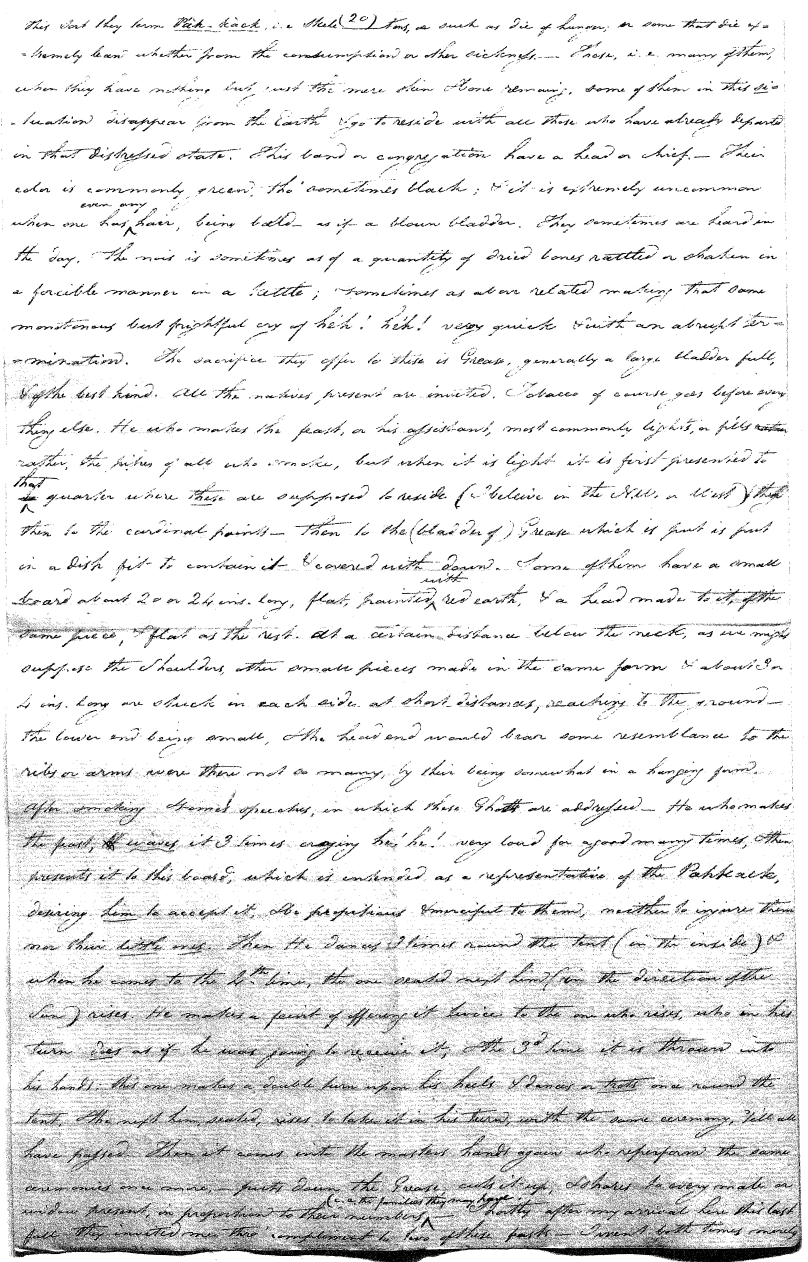 this sort they term Pâh-kack, i.e. Skele (20) tons, or such as die of hunger; or some that die ex
-tremely lean whether from the consumption or other sickness.— These, i.e. many of them,
when they have nothing but just the mere skin & bone remaining, some of them in this sit
-tuation disappear from the Earth & go to reside with all those who have already departed
in that distressed state. This band or congregation have a head or chief.— Their
color is commonly green, tho' sometimes black; & it is extremely uncommon
when one has even any hair, being bald— as if a blown bladder. They sometimes are heard in
the day. The nois is sometimes as of a quantity of dried bones rattled or shaken in
a forcible manner in a Kettle; sometimes as above related making that same
monotonous but frightful cry of hèh! hèh! very quick & with an abrupt ter-
-mination. The sacrifice they offer to these is Grease, generally a large bladder full,
& of the best kind. All the natives present are invited. Tobacco of course goes before every
thing else. He who makes the feast, or his assistant, most commonly lights, or fills
rather, the pipes of all who smoke, but when it is light it is first presented to
that quarter where these are supposed to reside (I beleive in the N.W. or West)
then to the cardinal points— then to the (bladder of) Grease which is put is put
in a dish fit to contain it & covered with down. Some of them have a small
board about 20 or 24 ins. long, flat, painted with red earth, & a head made to it, of the
same piece, & flat as the rest. At a certain distance below the neck, as we might
suppose the shoulders, other small pieces made in the same form & about 3 or
4 ins. long are stuck in each side at short distances, reaching to the ground—
the lower end being small, & the head end would bear some resemblance to the
ribs or arms were there not so many, by their being somewhat in a hanging form.
After smoking & some speeches, in which these Ghosts are addressed— He who makes
the feast, waves it 3 times crying he! he! very loud for a good many times, & then
presents it to this board, which is intended as a representative of the Pahkack,
desiring him to accept it, & be propitious & merciful to them, neither to injure them
nor their little ones. Then He dances 3 times round the tent (in the inside) &
when he comes to the 4th time, the one seated next him (in the direction of the
Sun) rises. He makes a feint of offering it twice to the one who rises, who in his
turn does as if he was going to receive it, & the 3d time it is thrown into
his hands: this one makes a double turn upon his heels & dances or trots once round the
tent, & the next him, seated, rises to take it in his turn, with the same ceremony, & till all
have passed. Then it comes into the masters hands again who reperforms the same
ceremonies once more,— puts down the Grease, cuts it up, & shares to every male or
widow present, in proportion to their numbers (i.e. the families they may have).— Shortly after my arrival here this last
fall they invited me thro' compliment to two of these feasts— I went both times merely